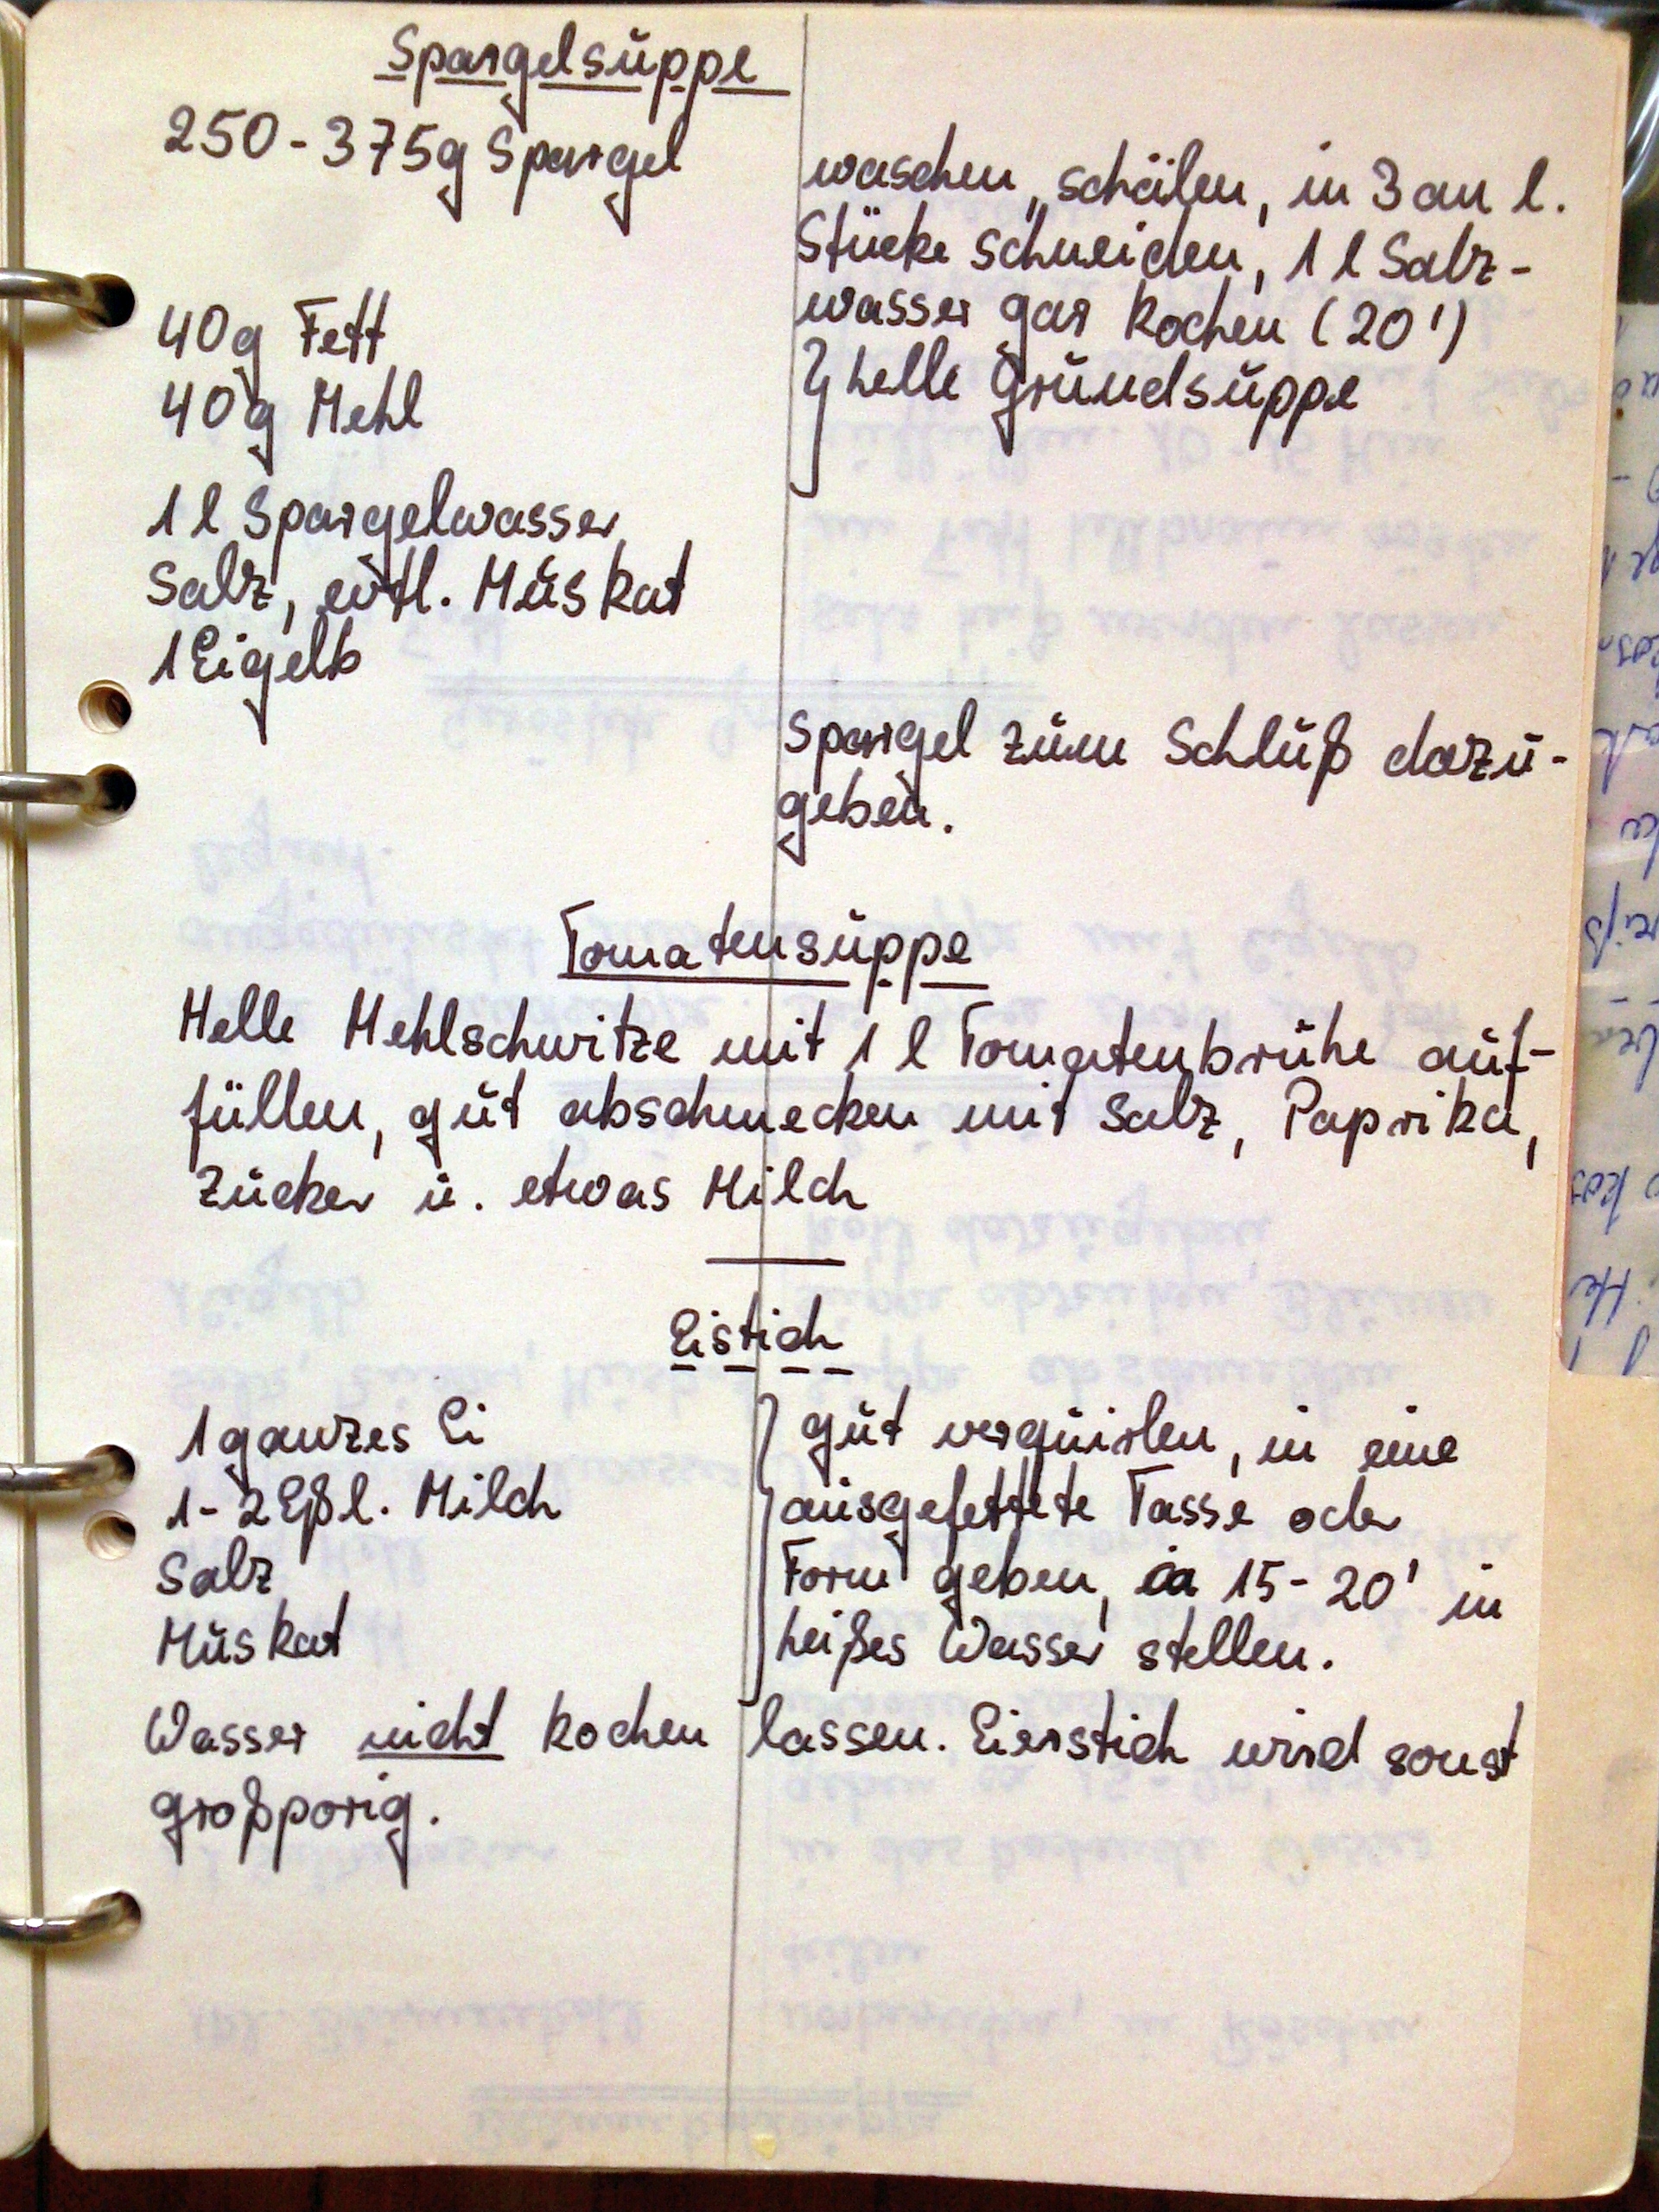 Spargelsuppe
250 - 375g Spargel
waschen, schälen, in 3 cm l.
Stücke schneiden, 1 l Salz-
wasser gar kochen (20')
40g Fett
40g Mehl
} helle Grundsuppe
1 l Spargelwasser
Salz, evtl. Muskat
1 Eigelb
Spargel zum Schluß dazu-
geben.
Tomatensuppe
Helle Mehlschwitze mit 1 l Tomatenbrühe auf-
füllen, gut abschmecken mit Salz, Paprika,
Zucker u. etwas Milch
Eistich
1 ganzes Ei
1-2 Eßl. Milch
Salz
Muskat
} gut verquirlen, in eine
ausgefettete Tasse oder
Form geben, ca 15-20' in
heißes Wasser stellen.
Wasser nicht kochen lassen. Eierstich wird sonst
großporig.